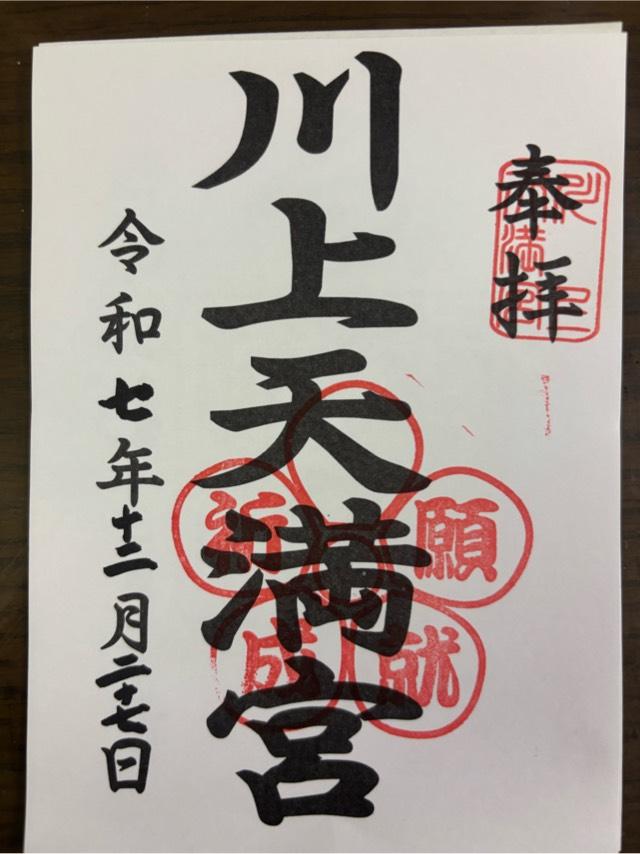 奉拝
川上天満宮
祈願
成就
令和七年十二月二十七日